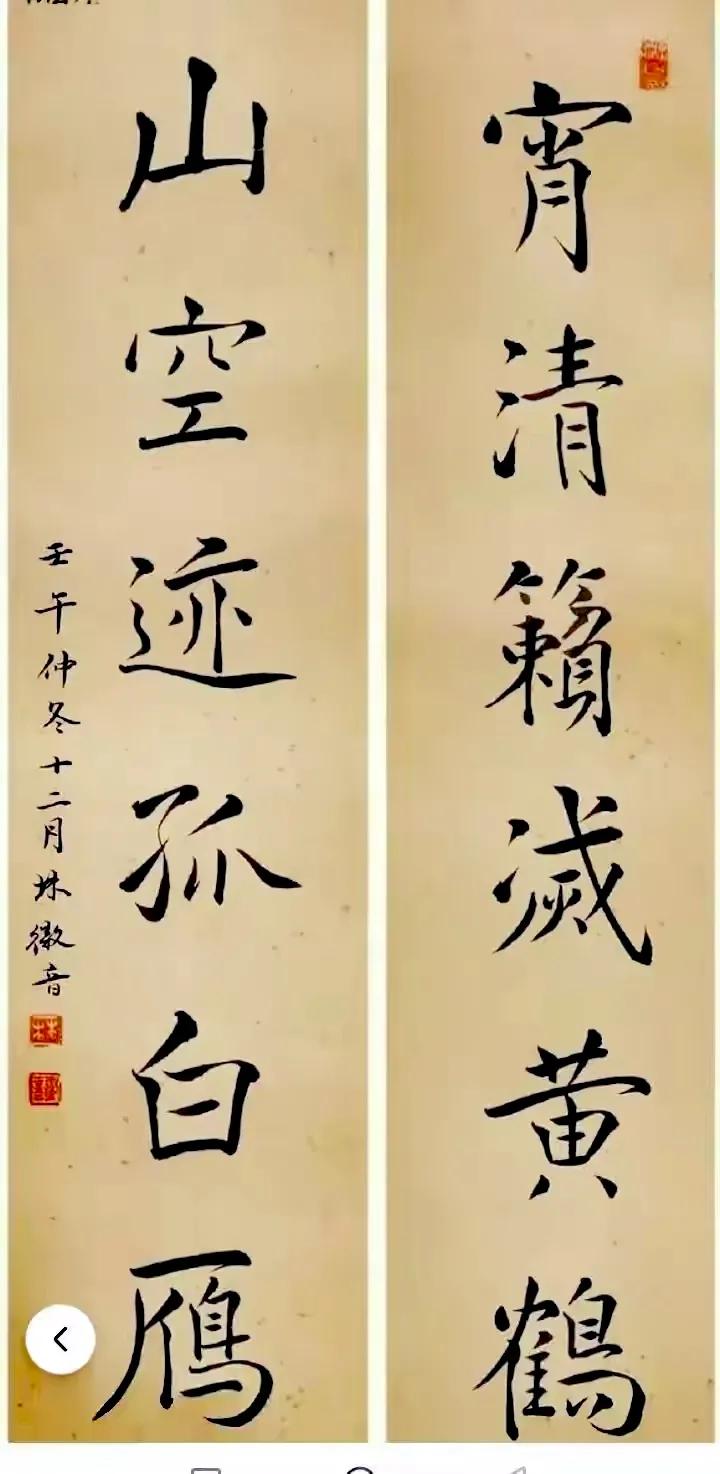 宵清籟滅黄鶴
山空迹孤白鴈
壬午仲冬十二月林徽音